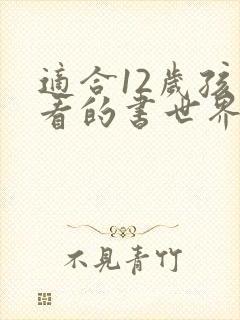 適合12歲孩
看的書世界
不見青竹